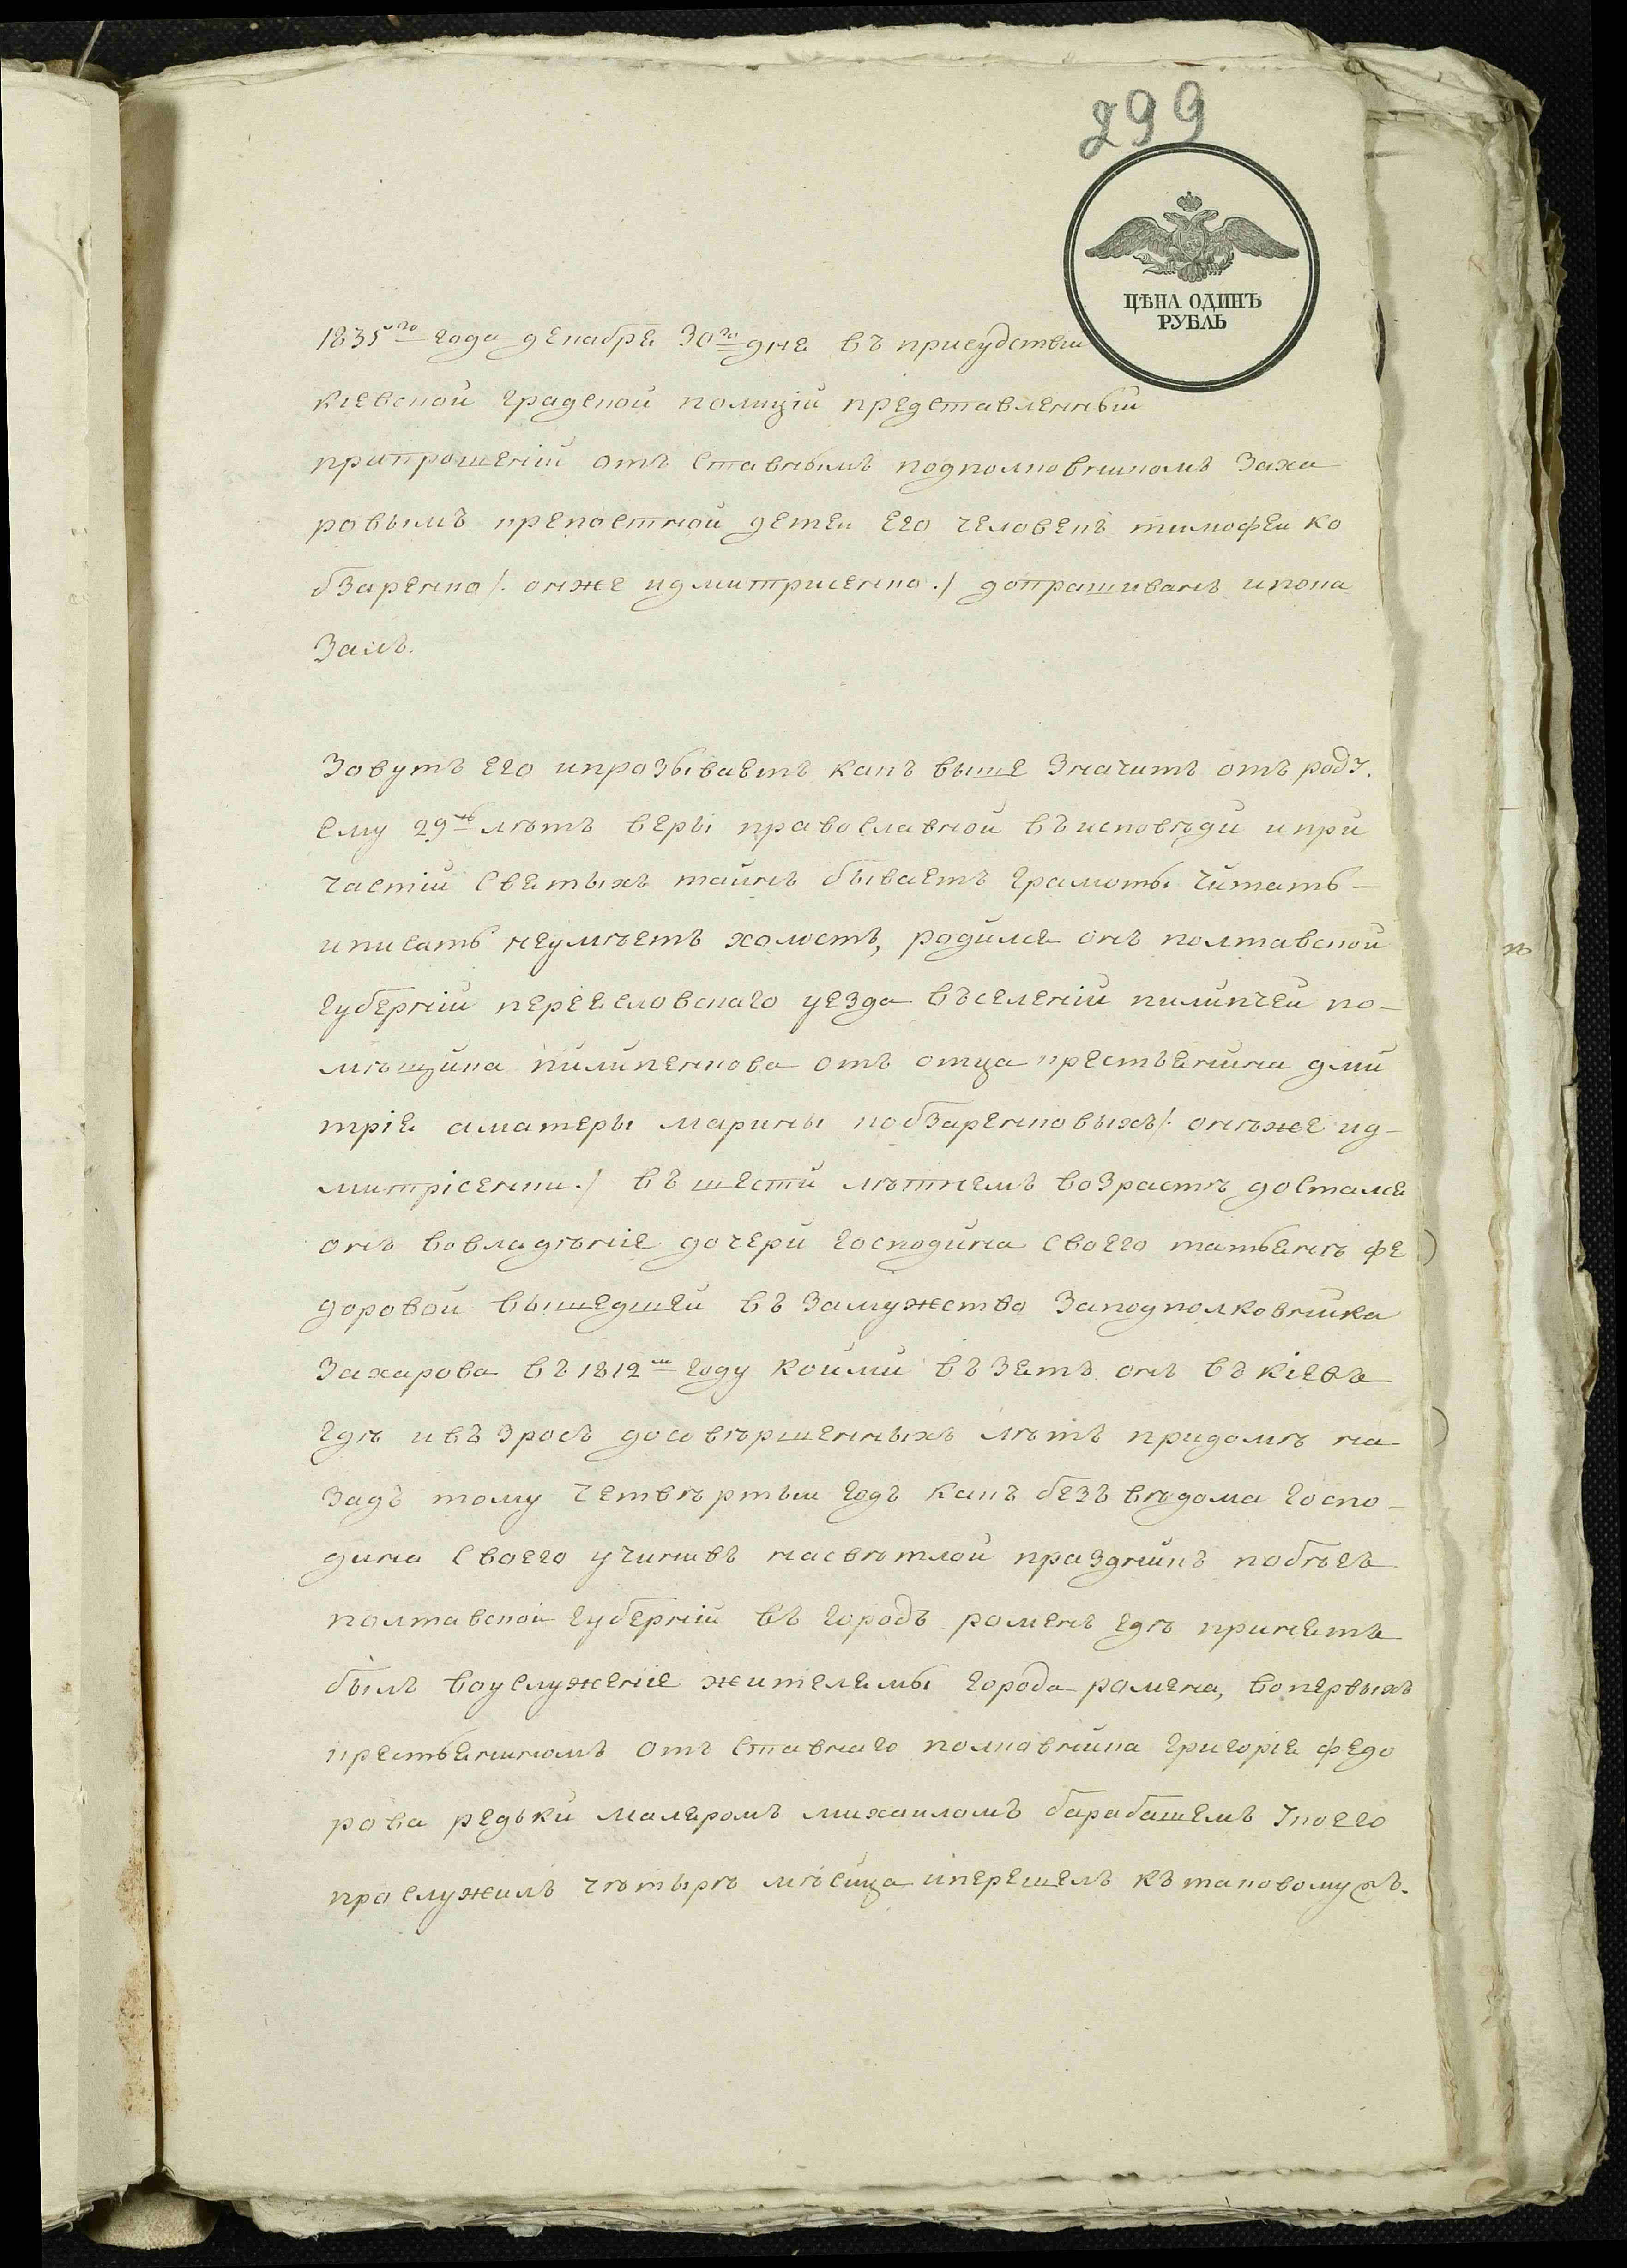 299
ЦѢНА ОДИНЪ
РУБЛЬ
1835го года декабря 30го дня въ присудствіи
кіевской градской полиціи представленный
припрошеніи отъ ставнымъ подполковникомъ Заха
ровымъ крепостной детей его человекъ тимофеи ко
бзаренко /. онже идмитрисенко ./ допрашиванъ ипока
Залъ.
Зовутъ его ипрозываетъ какъ выше Значитъ отъ роду.
ему 29ть лѣтъ веры православной въисповѣди ипри
частіи святыхъ таинъ бываетъ грамоты читать –
иписать неумѣетъ холостъ, родился онъ полтавской
губерніи переяславскаго уезда въселеніи пилипчей по-
мѣщика пилипенкова отъ отца крестьянина дми
трія аматеры марины кобзаренковыхъ /. онѣже ид-
митрісенки ./ въ шести лѣтнемъ возрастѣ достался
онъ вовладѣніе дочери господина своего татьянѣ фе
доровой вышедшей въ Замужество Заподполковника
Захарова въ 1812м году коими въ Зятъ онъ въ кіевъ
гдѣ ивъ Зросъ досовѣршенныхъ лѣтъ придомѣ на
Задъ тому четвѣртыи годъ какъ безъ вѣдома госпо-
дина своего учинивъ насвѣтлой праздникъ побѣгъ
полтавской губерніи въ городъ роменъ гдѣ принятъ
былъ воуслуженіе жителямы города ромена, вопервыхъ
крестьяниномъ отъ ставнаго полковника григорія федо
рова редьки маляромъ михаиломъ барабашемъ Укоего
прослужилъ чѣтырѣ мѣсяца иперешелъ къ таковому жъ.